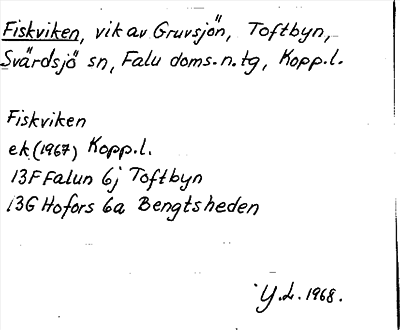 Fiskviken, vik av Gruvsjön, Toftbyn,
Svärdsjö sn, Falu doms.n.tg, Kopp.l.
Fiskviken
ek.(1967) Kopp.l.
13F Falun 6j Toftbyn
13G Hofors 6a Bengtsheden
Y.L. 1968.